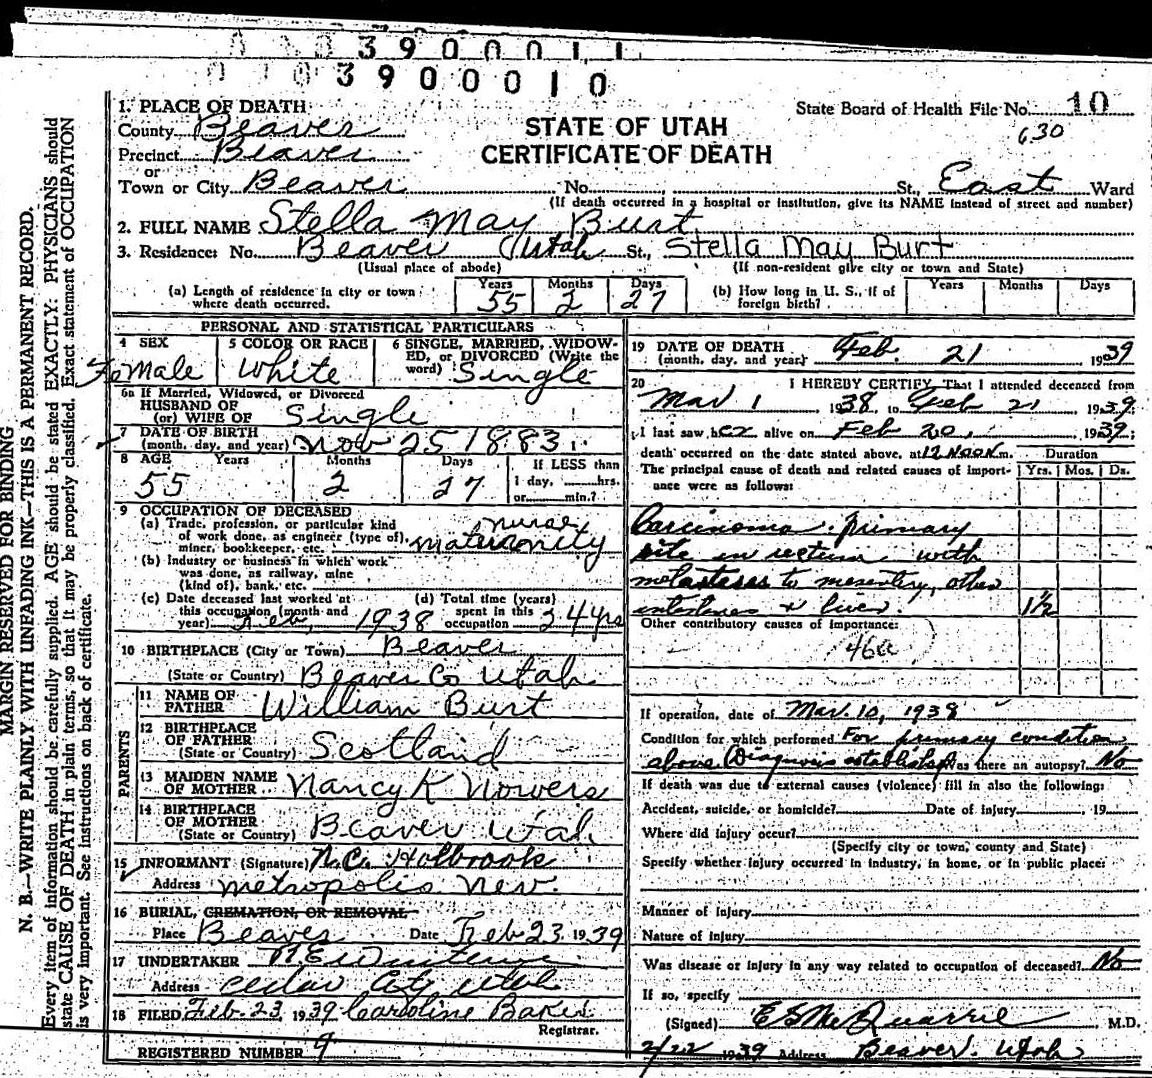 3900011
3900010
1. PLACE OF DEATH
State Board of Health File No. 10
County Beaver
STATE OF UTAH
630
Precinct Beaver
CERTIFICATE OF DEATH
or
Town or City Beaver No. St., East Ward
(If death occurred in a hospital or institution, give its NAME instead of street and number)
2. FULL NAME Stella May Burt
3. Residence: No. Beaver Utah St., Stella May Burt
(Usual place of abode) (If non-resident give city or town and State)
(a) Length of residence in city or town where death occurred. Years 55 Months 2 Days 27
(b) How long in U. S., if of foreign birth? Years Months Days
PERSONAL AND STATISTICAL PARTICULARS
4 SEX Female
5 COLOR OR RACE White
6 SINGLE, MARRIED, WIDOWED, or DIVORCED (Write the word) Single
6a If Married, Widowed, or Divorced
HUSBAND OF
(or) WIFE OF Single
7 DATE OF BIRTH
(month, day, and year) Nov 25 1883
8 AGE Years 55 Months 2 Days 27 If LESS than 1 day, hrs. or min.?
9 OCCUPATION OF DECEASED
(a) Trade, profession, or particular kind of work done, as engineer (type of), miner, bookkeeper, etc. nurse maternity
(b) Industry or business in which work was done, as railway, mine (kind of), bank, etc.
(c) Date deceased last worked at this occupation (month and year) Feb, 1938
(d) Total time (years) spent in this occupation 24 yrs
10 BIRTHPLACE (City or Town) Beaver
(State or Country) Beaver Co Utah
PARENTS
11 NAME OF FATHER William Burt
12 BIRTHPLACE OF FATHER (State or Country) Scotland
13 MAIDEN NAME OF MOTHER Nancy K Nowers
14 BIRTHPLACE OF MOTHER (State or Country) Beaver Utah
15 INFORMANT (Signature) N.C. Holbrook
Address Metropolis Nev.
16 BURIAL, CREMATION, OR REMOVAL
Place Beaver Date Feb 23 1939
17 UNDERTAKER
Address Cedar City Utah
18 FILED Feb. 23, 1939 Caroline Baker
Registrar.
REGISTERED NUMBER 9
19 DATE OF DEATH
(month, day, and year) Feb. 21 1939
20 I HEREBY CERTIFY, That I attended deceased from
Mar 1 1938, to Feb 21 1939
I last saw her alive on Feb 20, 1939;
death occurred on the date stated above, at 12 Noon m.
Duration
The principal cause of death and related causes of importance were as follows: Yrs. Mos. Ds.
Carcinoma. primary
site in rectum with
metastases to mesentery, other
intestines & liver. 1½
Other contributory causes of importance:
46a
If operation, date of Mar. 10, 1938
Condition for which performed For primary condition
above (Diagnosis established) Was there an autopsy? No
If death was due to external causes (violence) fill in also the following:
Accident, suicide, or homicide? Date of injury 19
Where did injury occur?
(Specify city or town, county and State)
Specify whether injury occurred in industry, in home, or in public place:
Manner of injury
Nature of injury
Was disease or injury in any way related to occupation of deceased? No
If so, specify
(Signed) E S McQuarrie M.D.
2/22 1939 Address Beaver, Utah
MARGIN RESERVED FOR BINDING
N. B.—WRITE PLAINLY WITH UNFADING INK—THIS IS A PERMANENT RECORD.
Every item of information should be carefully supplied. AGE should be stated EXACTLY. PHYSICIANS should
state CAUSE OF DEATH in plain terms, so that it may be properly classified. Exact statement of OCCUPATION
is very important. See instructions on back of certificate.